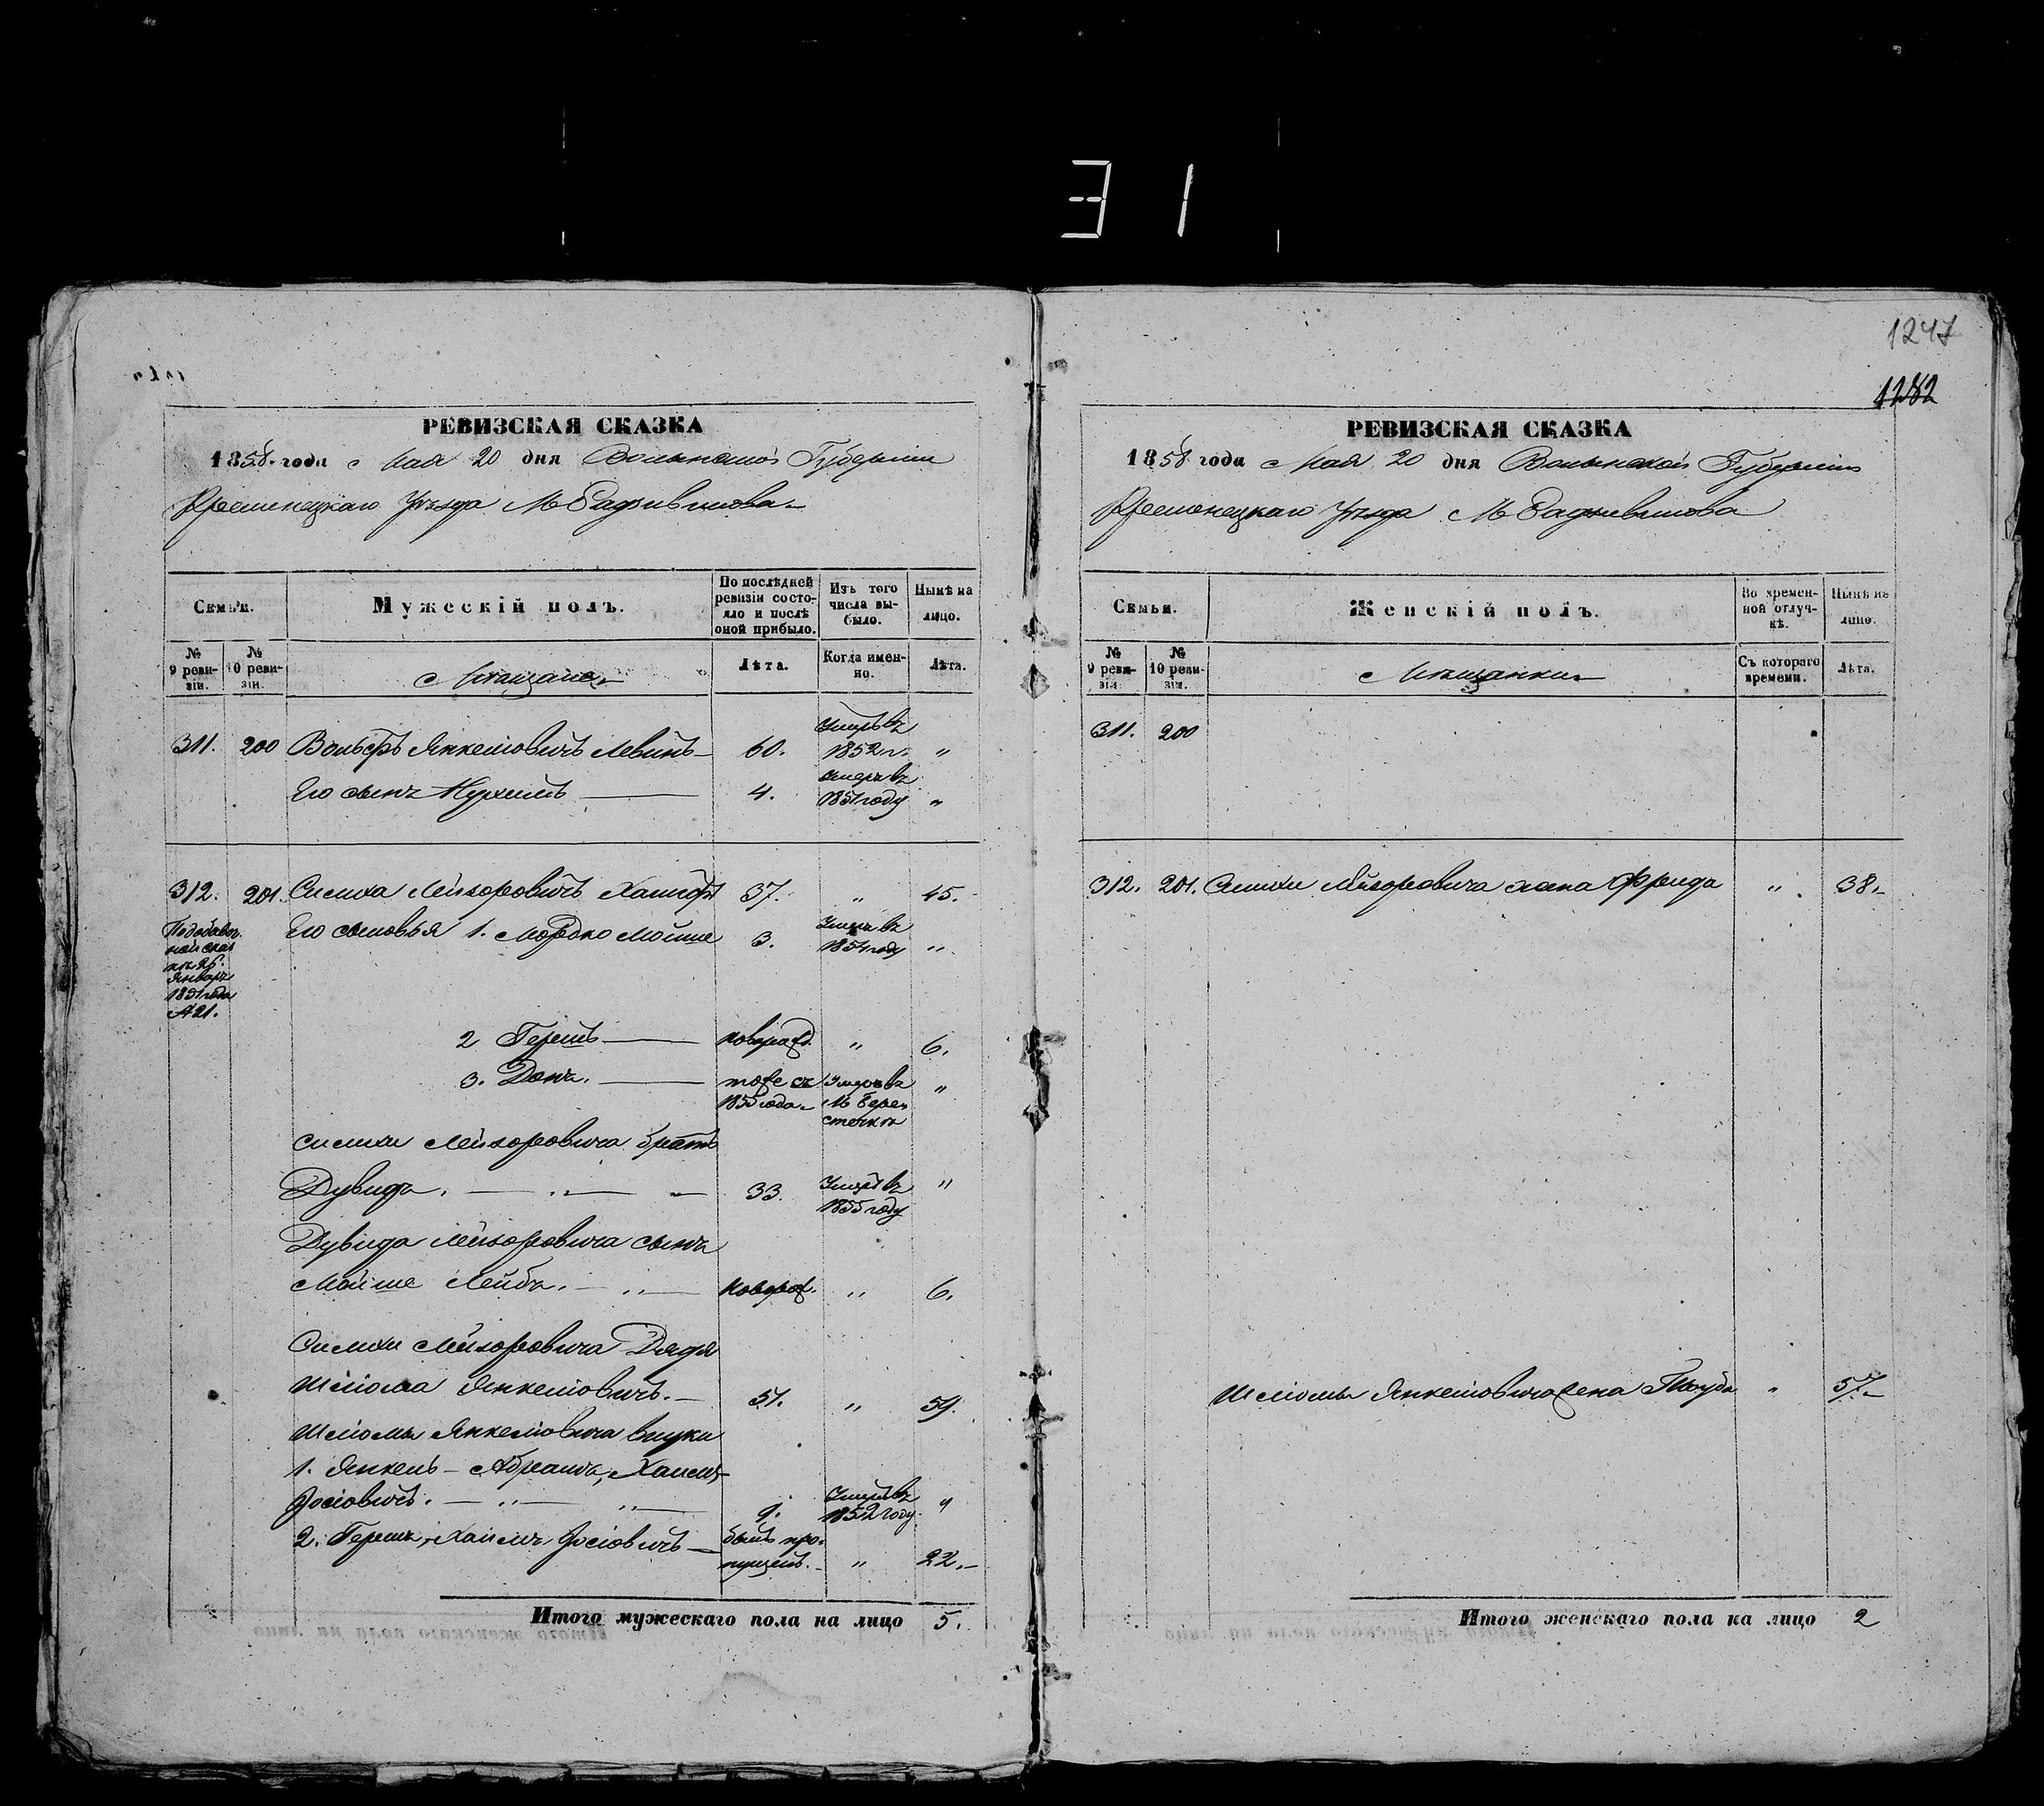 31
1247
1282
РЕВИЗСКАЯ СКАЗКА
1858 года Мая 20 дня Волынской Губерніи
Кременецкаго Уѣзда М Радзивилова
Семьи.
Мужескій полъ.
По послѣдней ревизіи состояло и послѣ оной прибыло.
Изъ того числа выбыло.
Нынѣ на лицо.
№ 9 ревизіи.
№ 10 ревизіи.
Мѣщане
Лѣта.
Когда именно.
Лѣта.
311. 200 Вольфъ Янкелiовичъ Левинъ 60. Умеръ въ 1852 г. "
Его сынъ Нухимъ 4. Умеръ въ 1851 году "
312. 201. Симха Лейзоровичъ 37. " 45.
Января
1851 года
№ 21.
Его сыновья 1. Мордко Мойше 3. Умеръ въ 1854 году "
2 Гершъ новорожд. " 6.
3. тоже съ 1850 года Умеръ въ М Берестечкѣ "
Симхи Лейзоровича братъ
Дувидъ. " 33. Умеръ въ 1855 году "
Дувида Лейзоровича сынъ
Мойше Лейбъ. " новорож. " 6.
Симхи Лейзоровича Дядя
Шліома Янкелiовичъ. 51. " 59.
Шліомы Янкелiовича внуки
1. Янкель-Абрамъ, Хаимъ-
Іосіовичъ. " " 9. Умеръ въ 1852 году. "
2. Гершъ, Хаимъ Іосіовичъ былъ пропущенъ. " 22.
Итого мужескаго пола на лицо 5.
РЕВИЗСКАЯ СКАЗКА
1858 года Мая 20 дня Волынской Губерніи
Кременецкаго Уѣзда М Радзивилова
Семьи.
Женскій полъ.
Во временной отлучкѣ.
Нынѣ на лицо.
№ 9 ревизіи.
№ 10 ревизіи.
Мѣщанки
Съ котораго времени.
Лѣта.
311. 200
312. 201. Симхи Лейзоровича жена Фрейда " 38.
Шліомы Янкелiовича жена Тауба " 57.
Итого женскаго пола на лицо 2